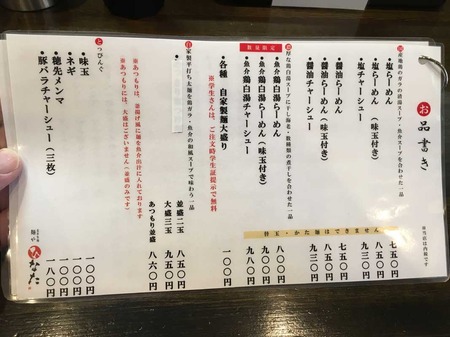 お品書き
※当店は内税です
国産地鶏のガラの清湯スープ・魚介スープを合わせた一品
・塩らーめん
七五〇円
・塩らーめん（味玉付き）
八五〇円
・塩チャーシュー
九三〇円
・醤油らーめん
七五〇円
・醤油らーめん（味玉付き）
八五〇円
・醤油チャーシュー
九三〇円
替玉・かた麺はできません
濃厚な鶏白湯スープに干し海老・数種類の煮干しを合わせた一品
数量限定
・魚介鶏白湯らーめん
八〇〇円
・魚介鶏白湯らーめん（味玉付き）
九〇〇円
・魚介鶏白湯チャーシュー
九八〇円
・各種 自家製麺大盛り
一〇〇円
※学生さんは、ご注文時学生証提示で無料
自家製平打ち太麺を鶏ガラ・魚介の和風スープで味わう一品
並盛二玉
八五〇円
大盛三玉
九五〇円
あつもり並盛
八六〇円
※あつもりは、釜揚げ風に麺を魚介出汁に入れております
※あつもりには、大盛はございません（並盛のみです）
とっぴんぐ
・味玉
一〇〇円
・ネギ
一〇〇円
・穂先メンマ
一〇〇円
・豚バラチャーシュー（三枚）
一八〇円
麺や
ひなた